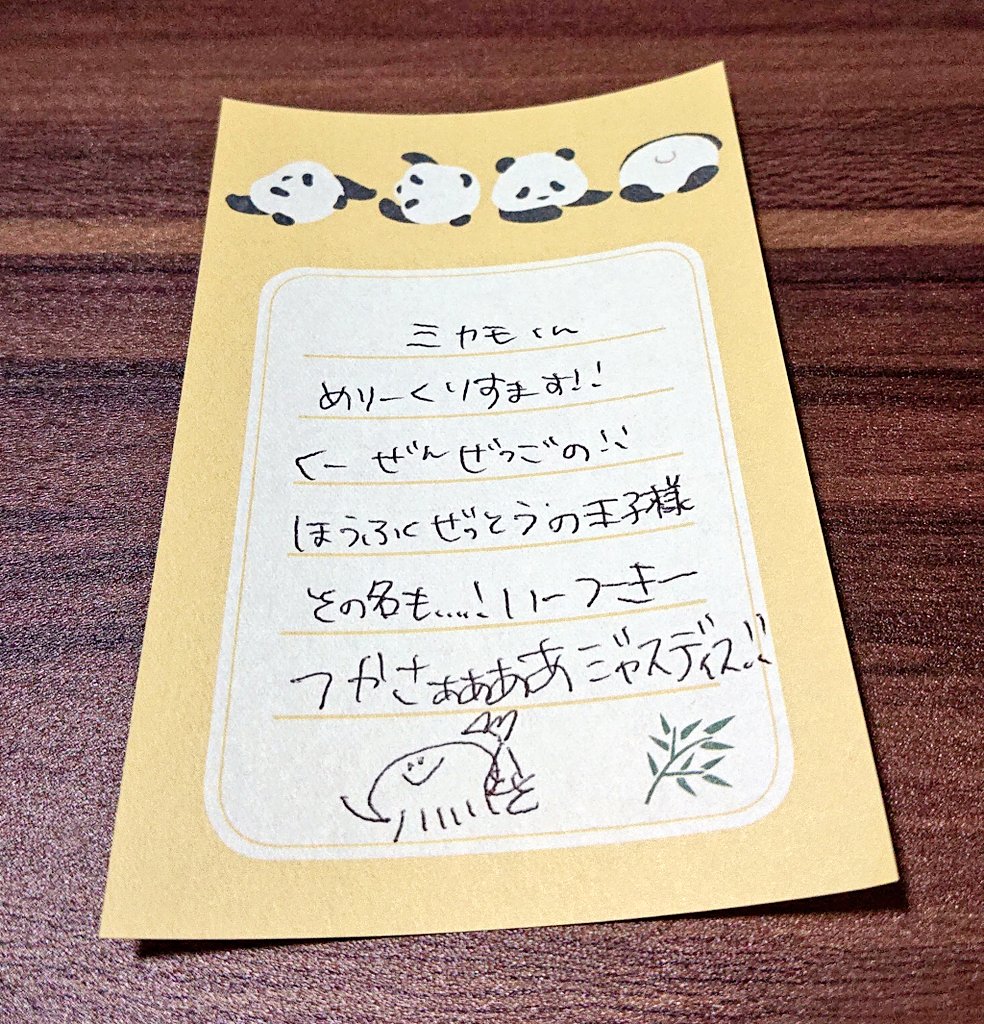 ミカモくん
めりーくりすます!!
くーぜんぜつごの!!
ほうふくぜっとうの王子様
その名も....! いーつーきー
つかさぁぁぁあジャスディス!!